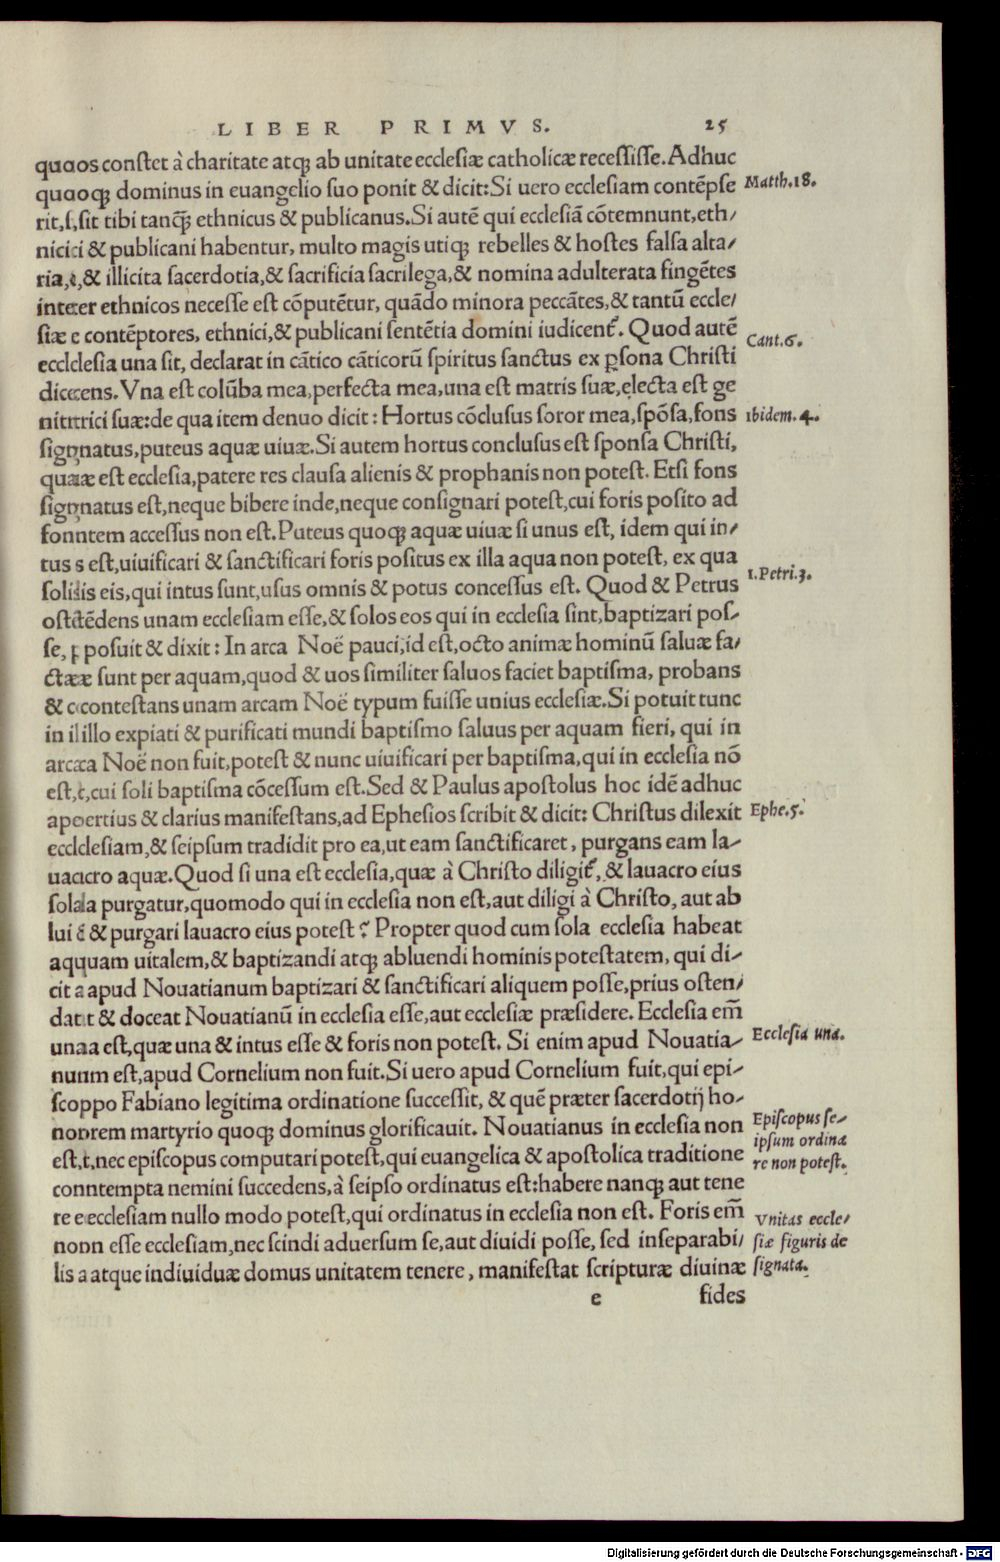 LIBER PRIMVS. 25
quos constet à charitate atq; ab unitate ecclesiæ catholicæ recessisse. Adhuc
quoq; dominus in euangelio suo ponit & dicit: Si uero ecclesiam contẽpse Matth.18.
rit, sit tibi tanq̃ ethnicus & publicanus. Si autẽ qui ecclesiã cõtemnunt, eth/
nici & publicani habentur, multo magis utiq; rebelles & hostes falsa alta/
ria, & illicita sacerdotia, & sacrificia sacrilega, & nomina adulterata fingẽtes
inter ethnicos necesse est cõputẽtur, quãdo minora peccãtes, & tantũ eccle/
siæ contẽptores, ethnici, & publicani sentẽtia domini iudicent᷑. Quod autẽ
ecclesia una sit, declarat in cãtico cãticorũ spiritus sanctus ex ꝑsona Christi Cant.6.
dicens. Vna est colũba mea, perfecta mea, una est matris suæ, electa est ge
nitrici suæ: de qua item denuo dicit: Hortus cõclusus soror mea, spõsa, fons Ibidem.4.
signatus, puteus aquæ uiuæ. Si autem hortus conclusus est sponsa Christi,
quæ est ecclesia, patere res clausa alienis & prophanis non potest. Etsi fons
signatus est, neque bibere inde, neque consignari potest, cui foris posito ad
fontem accessus non est. Puteus quoq; aquæ uiuæ si unus est, idem qui in/
tus est, uiuificari & sanctificari foris positus ex illa aqua non potest, ex qua
solis eis, qui intus sunt, usus omnis & potus concessus est. Quod & Petrus 1.Petri.3.
ostẽdens unam ecclesiam esse, & solos eos qui in ecclesia sint, baptizari pos-
se, posuit & dixit: In arca Noë pauci, id est, octo animæ hominũ saluæ fa/
ctæ sunt per aquam, quod & uos similiter saluos faciet baptisma, probans
& contestans unam arcam Noë typum fuisse unius ecclesiæ. Si potuit tunc
in illo expiati & purificati mundi baptismo saluus per aquam fieri, qui in
arca Noë non fuit, potest & nunc uiuificari per baptisma, qui in ecclesia nõ
est, cui soli baptisma cõcessum est. Sed & Paulus apostolus hoc idẽ adhuc
apertius & clarius manifestans, ad Ephesios scribit & dicit: Christus dilexit Ephe.5.
ecclesiam, & seipsum tradidit pro ea, ut eam sanctificaret, purgans eam la-
uacro aquæ. Quod si una est ecclesia, quæ à Christo diligit᷑, & lauacro eius
sola purgatur, quomodo qui in ecclesia non est, aut diligi à Christo, aut ab
lui & purgari lauacro eius potest? Propter quod cum sola ecclesia habeat
aquam uitalem, & baptizandi atq; abluendi hominis potestatem, qui di-
cit apud Nouatianum baptizari & sanctificari aliquem posse, prius osten/
dat & doceat Nouatianũ in ecclesia esse, aut ecclesiæ præsidere. Ecclesia em̃
una est, quæ una & intus esse & foris non potest. Si enim apud Nouatia- Ecclesia una.
num est, apud Cornelium non fuit. Si uero apud Cornelium fuit, qui epi-
scopo Fabiano legitima ordinatione successit, & quẽ præter sacerdotij ho-
norem martyrio quoq; dominus glorificauit. Nouatianus in ecclesia non Episcopus se-
est, nec episcopus computari potest, qui euangelica & apostolica traditione ipsum ordina
contempta nemini succedens, à seipso ordinatus est: habere nanq; aut tene re non potest.
re ecclesiam nullo modo potest, qui ordinatus in ecclesia non est. Foris em̃ Vnitas eccle/
non esse ecclesiam, nec scindi aduersum se, aut diuidi posse, sed inseparabi/ siæ figuris de
lis atque indiuiduæ domus unitatem tenere, manifestat scripturæ diuinæ signata.
e fides
Digitalisierung gefördert durch die Deutsche Forschungsgemeinschaft - DFG